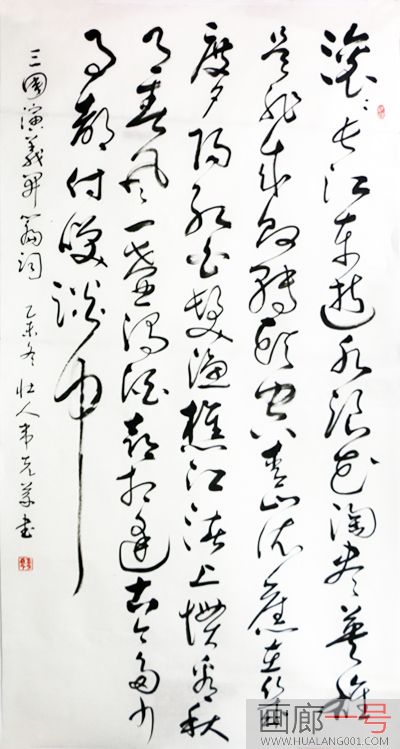 滚〻长江东逝水浪花淘尽英雄
是非成败转头空青山依旧在几
度夕阳红白发渔樵江渚上惯看秋
月春风一壶浊酒喜相逢古今多少
事都付笑谈中
三國演義開篇词 乙未冬 壮人韦克书
画廊一号
WWW.HUALANG001.COM